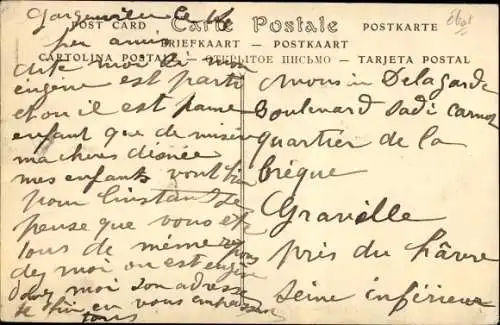 POST CARD Carte Postale POSTKARTE
BRIEFKAART — POSTKAART
CARTOLINA POSTALE — ОТКРЫТОЕ ПИСЬМО — TARJETA POSTAL
Gargenville le
cher ami
dite moi
eugène est parti
et ou il est pauvre
enfant que de misère
ma chere
mes enfants vont bien
pour l'instant je
pense que vous et
tous de même
dez moi ou est eugène
donnez moi son adresse
je fini en vous embrassan
tous
Monsieur Delagarde
Boulevard Sadi Carnot
quartier de la
brèque
Graville
près du hâvre
seine inférieure